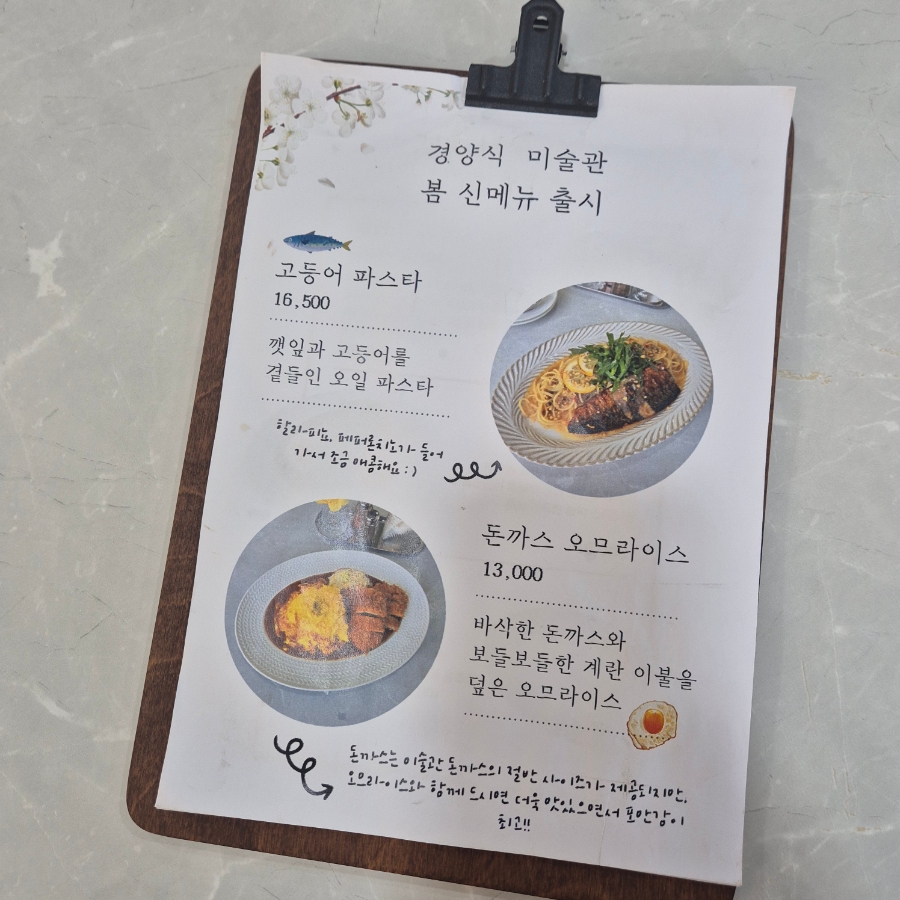 경양식 미술관
봄 신메뉴 출시
고등어 파스타
16,500
깻잎과 고등어를
곁들인 오일 파스타
할라피뇨, 페퍼론치노가 들어
가서 조금 매콤해요 :)
돈까스 오므라이스
13,000
바삭한 돈까스와
보들보들한 계란 이불을
덮은 오므라이스
돈까스는 미술관 돈까스의 절반 사이즈가 제공되지만,
오므라이스와 함께 드시면 더욱 맛있으면서 포만감이
최고!!